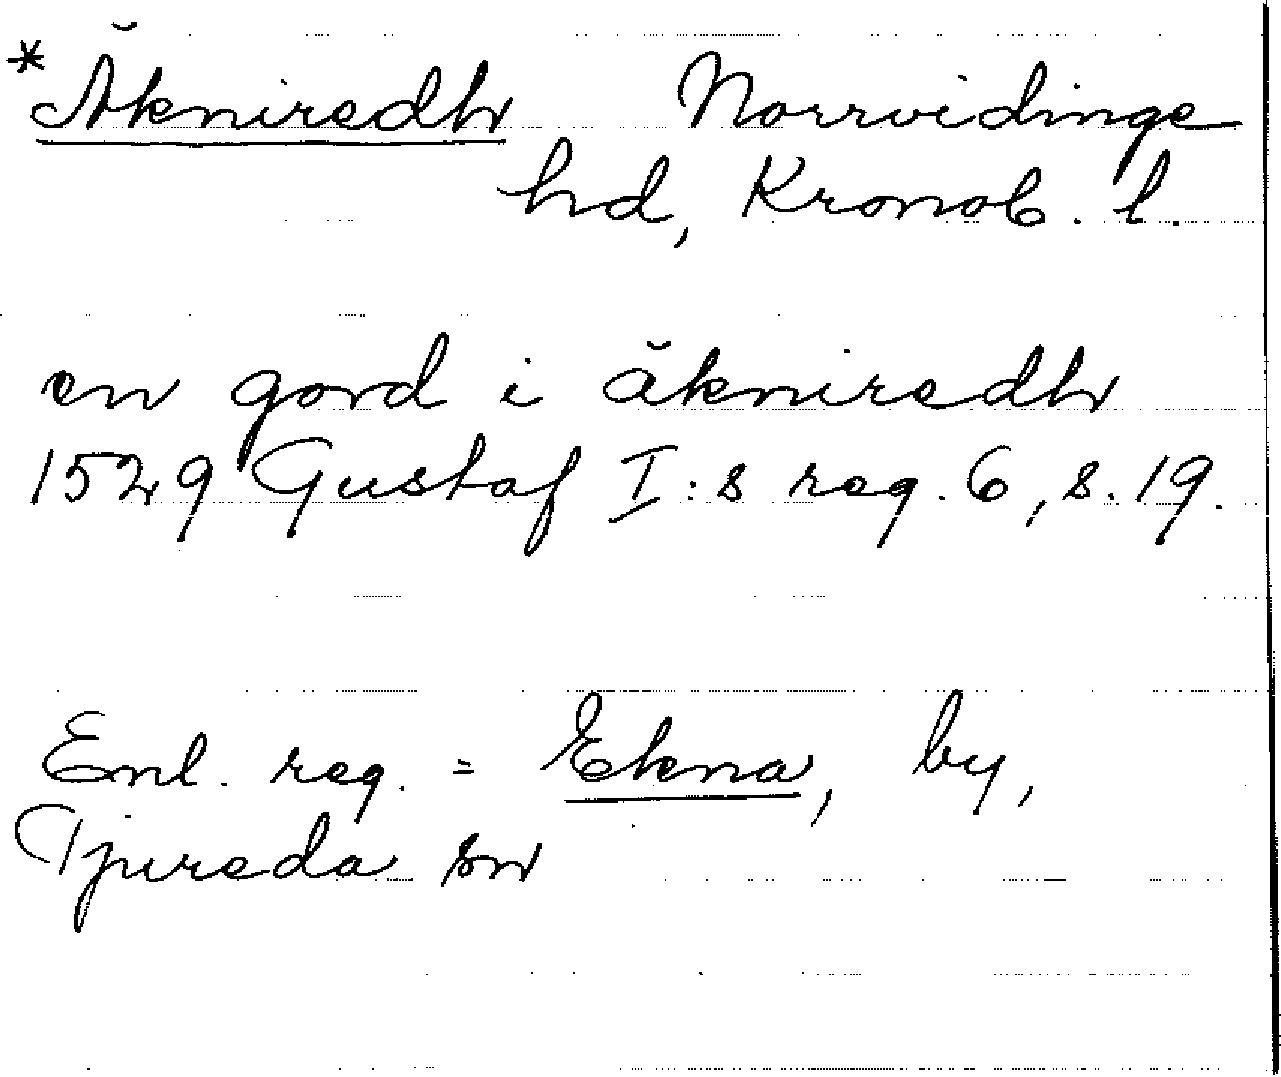 *Äkniredh Norrvidinge
hd, Kronob. l.
en gord i äkniredh
1529 Gustaf I:s reg. 6, s. 19.
Enl. reg. = Ekna, by,
Tjureda sn